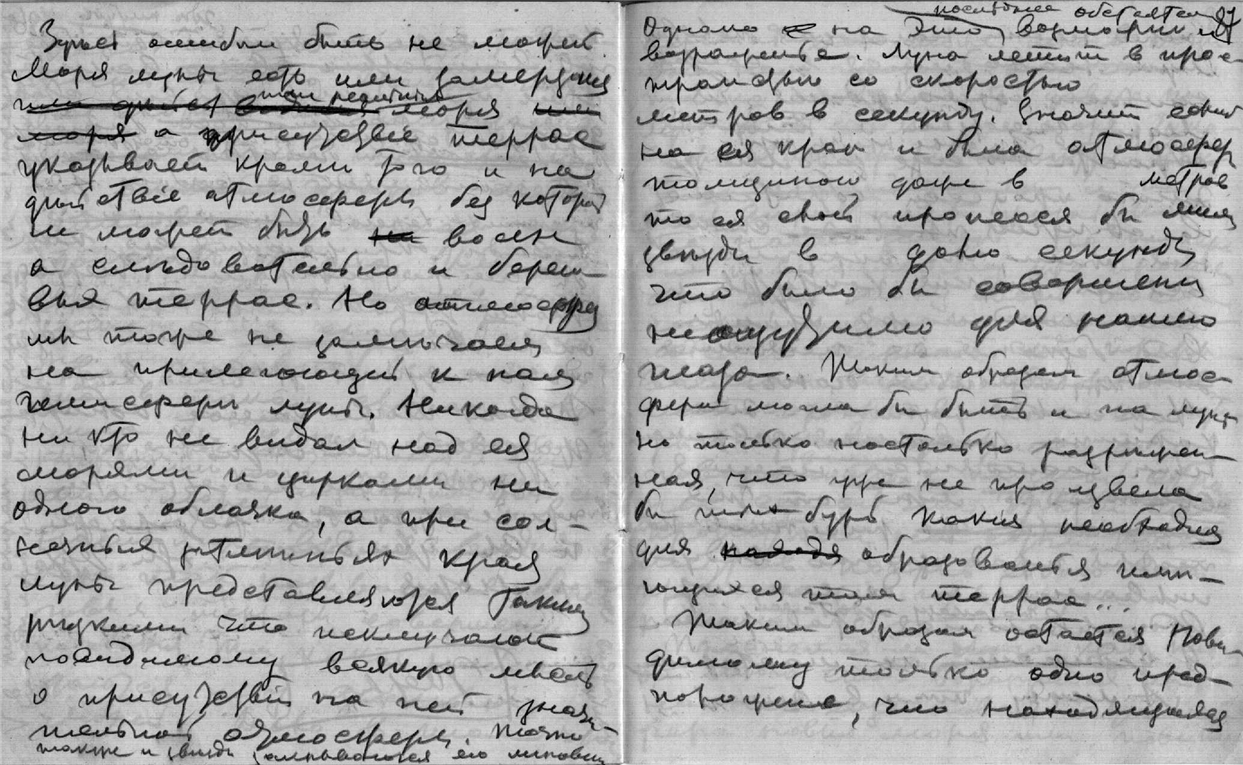 Здесь ошибки быть не может.
Моря луны есть или замерзшія
или моря
моря а присутствіе террас
указывает кроме того и на
дѣйствіе атмосферы без которой
не может быть волн
а слѣдовательно и берего-
выя террас. Но атмосферы
мы тоже не замѣчаем
на прилегающей к нам
гемисферѣ луны. Никогда
никто не видал над ея
морями и цирками ни
одного облачка, а при сол-
нечных затмѣніях края
луны представляются такими
рѣзкими что исключают
повидимому всякую мысль
о присутствіи на ней значи-
тельной атмосферы. Точно
также и звѣзды закрываются ею мгновенно
87
послѣднее обстоятел
Однако на это возможно
возраженіе. Луна летит в прос-
транствѣ со скоростью
метров в секунду. Значит если
на ея краю и была атмосфера
толщиною даже в метров
то ея слой пронесся бы мимо
звѣзды в долю секунды
что было бы совершенно
неощутимо для нашего
глаза. Таким образом атмос-
фера могла бы быть и на лунѣ
но только настолько разрѣжен-
ная, что уже не произвела
бы бурь какія необходимы
для образованія имѣ-
ющихся там террас...
Таким образом остается пови-
димому только одно пред-
положеніе, что находящаяся